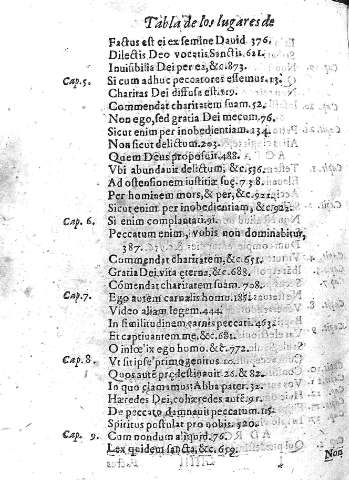 Tabla de los lugares de
Factus est ei ex semine David. 376.
Dilectis Deo vocatis Sanctis. 621.
Invisibilia Dei per ea, &c. 873.
Cap. 5. Si cum adhuc peccatores essemur. 13.
Charitas Dei diffusa est. 519.
Commendat charitatem suam. 52.
Non ego, sed gratia Dei mecum. 76.
Sicut enim per inobedientiam. 234.
Non sicut delictum. 203.
Quem Deus proposuit. 488.
Vbi abundauit delictum, &c. 536.
Ad ostensionem iustitiæ suę. 738.
Per hominem mors, & per, &c. 921.
Sicut enim per inobedientiam, &c. 922.
Cap. 6. Si enim complantati. 91.
Peccatum enim, vobis non dominabitur,
387.
Commendat charitatem, &c. 651.
Gratia Dei vita eterna, &c. 688.
Cómendat charitatem suam. 708.
Cap. 7. Ego autem carnalis homo. 185.
Video aliam legem. 444.
In similitudinem carnis peccati. 463.
Et captiuantem me, &c. 681.
O infœlix ego homo. &c. 772.
Cap. 8. Vt sit ipse primogenitus. 10.
Quos auté predestinauit. 26. & 82.
In quo clamamus Abba pater. 32.
Hæredes Dei, cohæredes auté. 91.
De peccato damnauit peccatum. 115.
Spiritus postulat pro nobis. 520.
Cap. 9. Cum nondum aliquid. 76.
Lex quidem sancta, &c. 659.
Non